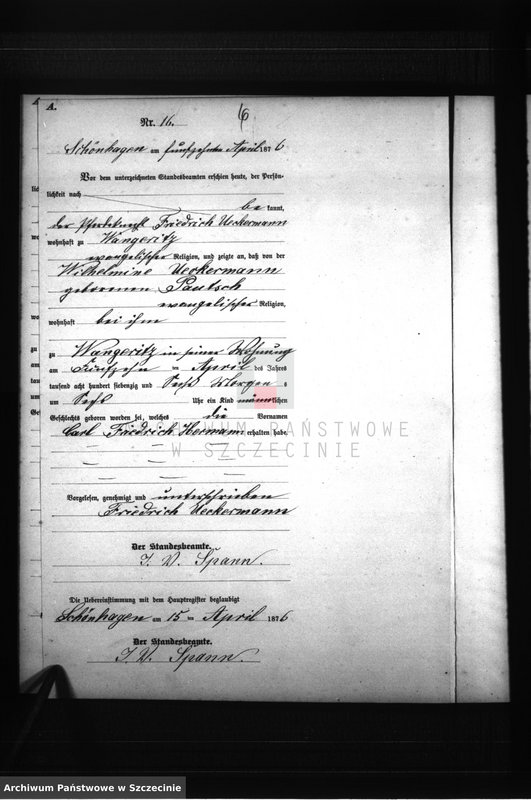 A.
Nr. 16.
16
Schönhagen am fünfzehnten April 1876
Vor dem unterzeichneten Standesbeamten erschien heute, der Persön-
lichkeit nach
be kannt,
der Pferdeknecht Friedrich Ueckermann
wohnhaft zu Wangeritz
evangelischer Religion, und zeigte an, daß von der
Wilhelmine Ueckermann
geborenen Pautsch
evangelischer Religion,
wohnhaft bei ihm
zu Wangeritz in seiner Wohnung
am Fünfzehn ten April des Jahres
tausend acht hundert siebenzig und Sechs Morgens
um Sechs Uhr ein Kind männlichen
Geschlechts geboren worden sei, welches die Vornamen
Carl Friedrich Hermann erhalten habe.
ARCHIWUM PAŃSTWOWE
W SZCZECINIE
Vorgelesen, genehmigt und unterschrieben
Friedrich Ueckermann
Der Standesbeamte.
J. V. Spann.
Die Uebereinstimmung mit dem Hauptregister beglaubigt
Schönhagen am 15 ten April 1876
Der Standesbeamte.
J. V. Spann.
Archiwum Państwowe w Szczecinie